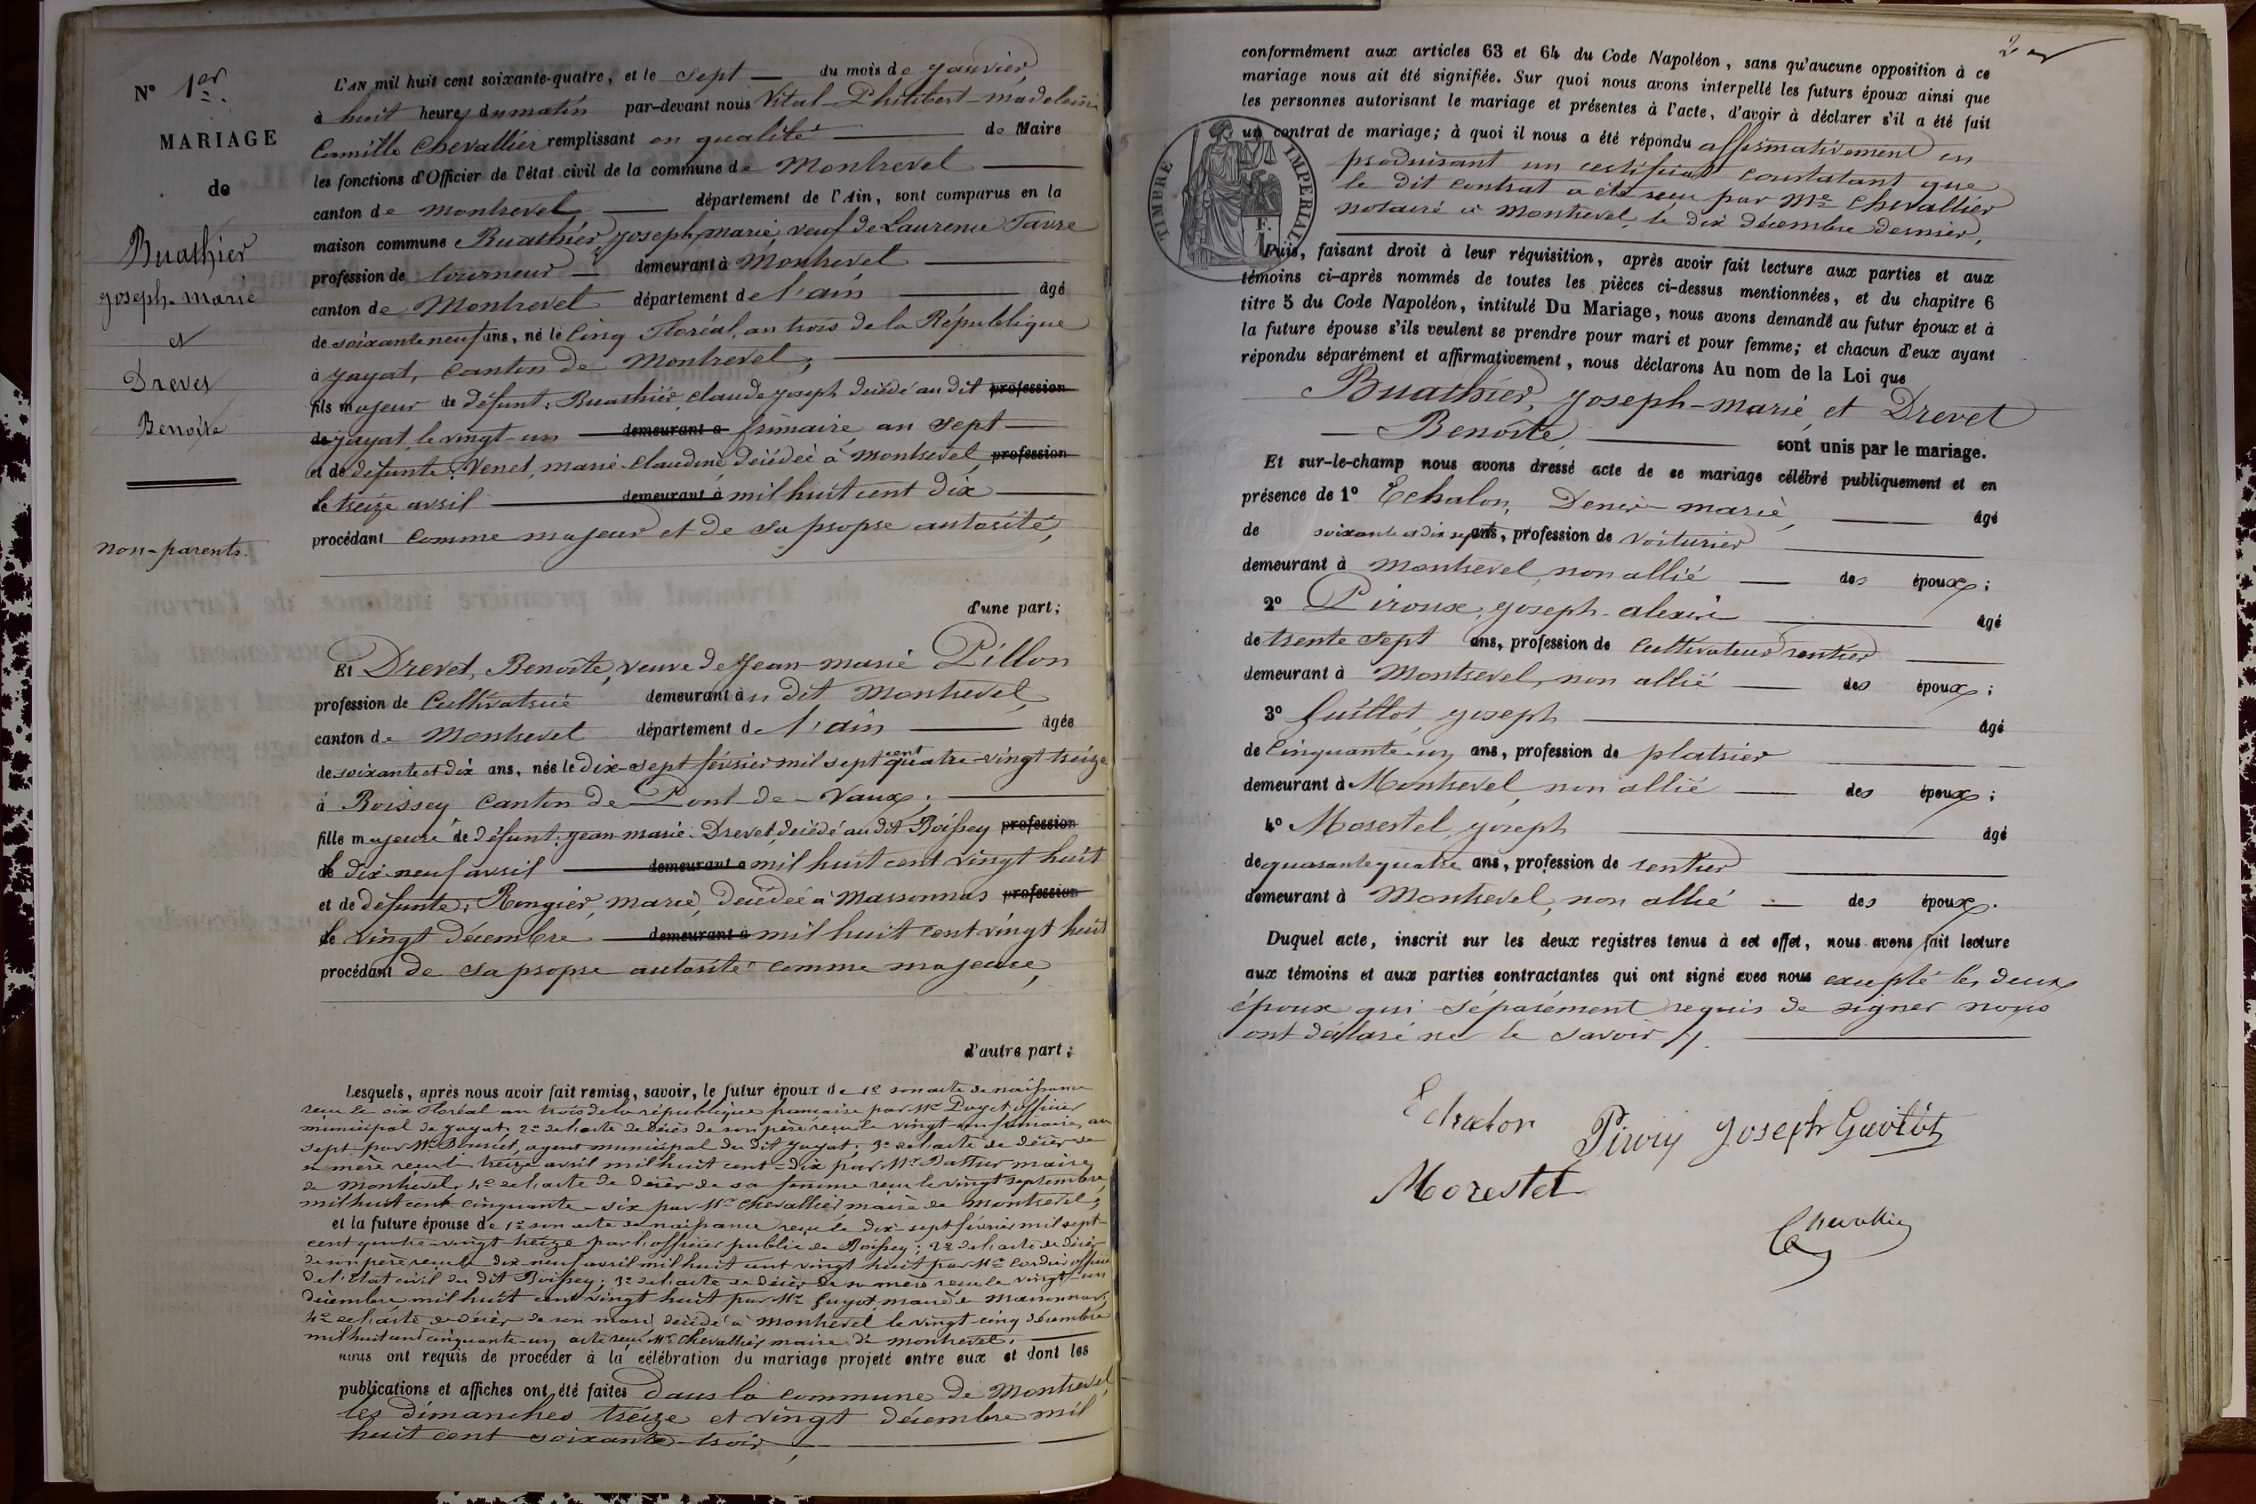 N° 1er
MARIAGE
de
Buathier
Joseph-marie
et
Drevet
Benoite
non-parents.
L'AN mil huit cent soixante-quatre, et le sept du mois de janvier
à huit heures du matin par-devant nous Vital-Philibert-madeleine
Camille Chevallier remplissant en qualité de Maire
les fonctions d'Officier de l'état civil de la commune de Montrevel
canton de montrevel département de l'Ain, sont comparus en la
maison commune Buathier, joseph, marie, veuf de Laurence Favre
profession de tourneur demeurant à Montrevel
canton de Montrevel département de l'ain âgé
de soixante neuf ans, né le Cinq Floréal, an trois de la République
à jayat, canton de Montrevel,
fils majeur de défunt: Buathier, claude joseph décédé au dit profession
de jayat, le vingt-un demeurant à frimaire an sept
et de défunte: Venet, marie-Claudine décédée à Montrevel profession
le treize avril demeurant à mil huit cent dix
procédant comme majeur et de sa propre autorité,
d'une part;
Et Drevet, Benoite, veuve de Jean-marie Pillon
profession de Cultivatrice demeurant au dit Montrevel,
canton de Montrevel département de l'ain âgée
de soixante et dix ans, née le dix-sept février mil sept cent quatre-vingt treize
à Boissey Canton de Pont-de-Vaux,
fille majeure de défunt: jean-marie Drevet, décédé au dit Boissey profession
le dix neuf avril demeurant à mil huit cent vingt huit
et de défunte: Rongier, marie, décédée à Marsonnas profession
le vingt décembre demeurant à mil huit cent vingt huit
procédant de sa propre autorité comme majeure,
d'autre part;
Lesquels, après nous avoir fait remise, savoir, le futur époux de 1° son acte de naissance
reçu le six Floréal an trois de la république française par Mr Puget officier
municipal de jayat; 2° de l'acte de décès de son père reçu le vingt-un frimaire, an
sept par Mr agent municipal du dit jayat; 3° de l'acte de décès de
sa mère reçu le treize avril mil huit cent-dix par Mr maire
de Montrevel; 4° de l'acte de décès de sa femme reçu le vingt septembre
mil huit cent cinquante-six par Mr Chevallier maire de Montrevel;
et la future épouse de 1° son acte de naissance reçu le dix-sept février mil sept-
cent quatre-vingt treize par l'officier public de Boissey; 2° de l'acte de décès
de son père reçu le dix-neuf avril mil huit cent vingt huit par Mr officier
de l'Etat civil du dit Boissey; 3° de l'acte de décès de sa mère reçu le vingt-un
décembre mil huit cent vingt huit par Mr Guyot, maire de Marsonnas;
4° de l'acte de décès de son mari décédé à Montrevel le vingt-cinq décembre
mil huit cent cinquante-un acte reçu Mr Chevallier maire de Montrevel.
nous ont requis de procéder à la célébration du mariage projeté entre eux et dont les
publications et affiches ont été faites dans la commune de Montrevel
les dimanches treize et vingt décembre mil
huit cent soixante-trois,
2
conformément aux articles 63 et 64 du Code Napoléon, sans qu'aucune opposition à ce
mariage nous ait été signifiée. Sur quoi nous avons interpellé les futurs époux ainsi que
les personnes autorisant le mariage et présentes à l'acte, d'avoir à déclarer s'il a été fait
un contrat de mariage; à quoi il nous a été répondu affirmativement en
produisant un certificat constatant que
le dit contrat a été reçu par Me Chevallier
notaire à Montrevel, le dix décembre dernier,
TIMBRE IMPERIAL
Puis, faisant droit à leur réquisition, après avoir fait lecture aux parties et aux
témoins ci-après nommés de toutes les pièces ci-dessus mentionnées, et du chapitre 6
titre 5 du Code Napoléon, intitulé Du Mariage, nous avons demandé au futur époux et à
la future épouse s'ils veulent se prendre pour mari et pour femme; et chacun d'eux ayant
répondu séparément et affirmativement, nous déclarons Au nom de la Loi que
Buathier, Joseph-marie, et Drevet
Benoite, sont unis par le mariage.
Et sur-le-champ nous avons dressé acte de se mariage célébré publiquement et en
présence de 1° Echalon, Denis-marie, âgé
de soixante et dix sept ans, profession de voiturier
demeurant à Montrevel, non allié des époux;
2° Piroux, joseph-alexis âgé
de trente sept ans, profession de cultivateur rentier
demeurant à Montrevel, non allié des époux;
3° Guillot, joseph âgé
de Cinquante-un ans, profession de platrier
demeurant à Montrevel, non allié des époux;
4° Morestel, joseph âgé
de quarante quatre ans, profession de rentier
demeurant à Montrevel, non allié des époux.
Duquel acte, inscrit sur les deux registres tenus à cet effet, nous avons fait lecture
aux témoins et aux parties contractantes qui ont signé avec nous excepté les deux
époux qui séparément requis de signer nous
ont déclaré ne le savoir
Echalon Joseph
Morestel
Chevallier